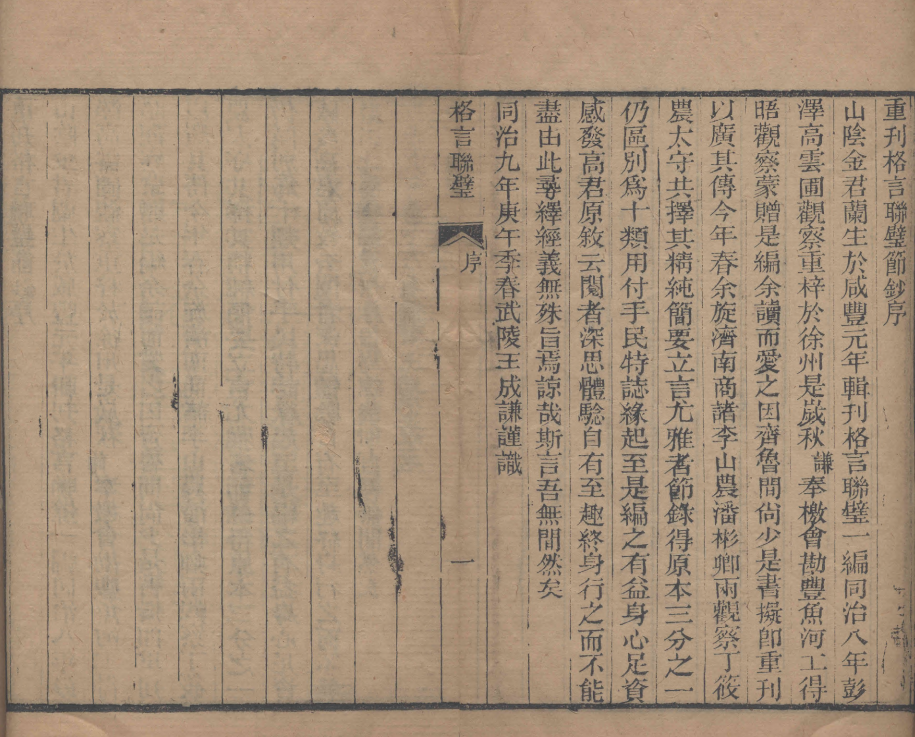 重刊格言聯璧節鈔序
山陰金君蘭生於咸豐元年輯刊格言聯璧一編同治八年彭
澤高雲圃觀察重梓於徐州是歲秋謙奉檄會勘豐魚河工得
晤觀察蒙贈是編余讀而愛之因齊魯間尙少是書擬卽重刊
以廣其傳今年春余旋濟南商諸李山農潘彬卿兩觀察丁筱
農太守共擇其精純簡要立言尤雅者節錄得原本三分之一
仍區別爲十類用付手民特誌緣起至是編之有益身心足資
感發高君原敘云閱者深思體騐自有至趣終身行之而不能
盡由此尋繹經義無殊旨焉諒哉斯言吾無間然矣
同治九年庚午季春武陵王成謙謹識
格言聯璧
序
一